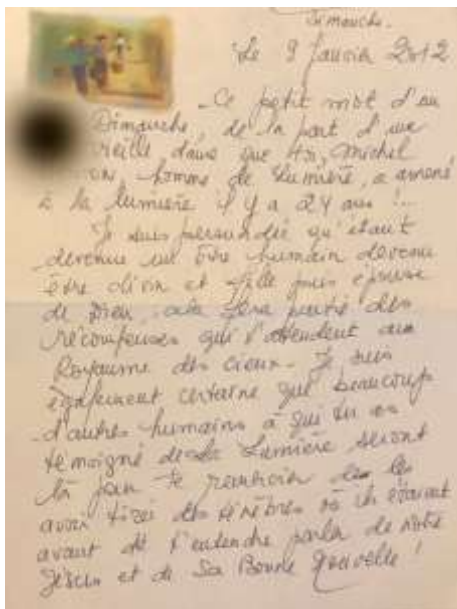 Dimanche.
Le 9 Janvier 2012
Ce petit mot d'un
Dimanche, de la part d'une
vieille dame que toi, Michel
homme de Lumière, a amené
à la lumière il y a 24 ans !...
Je suis persuadée qu'étant
devenue un être humain devenu
être divin et fille puis épouse
de Dieu, cela fera partie des
récompenses qui t'attendent au
Royaume des cieux. Je suis
également certaine que beaucoup
d'autres humains à qui tu as
témoigné de la Lumière seront
là pour te remercier de les
avoir tirés des ténèbres où ils étaient
avant de t'entendre parler de notre
Jésus et de Sa Bonne Nouvelle !